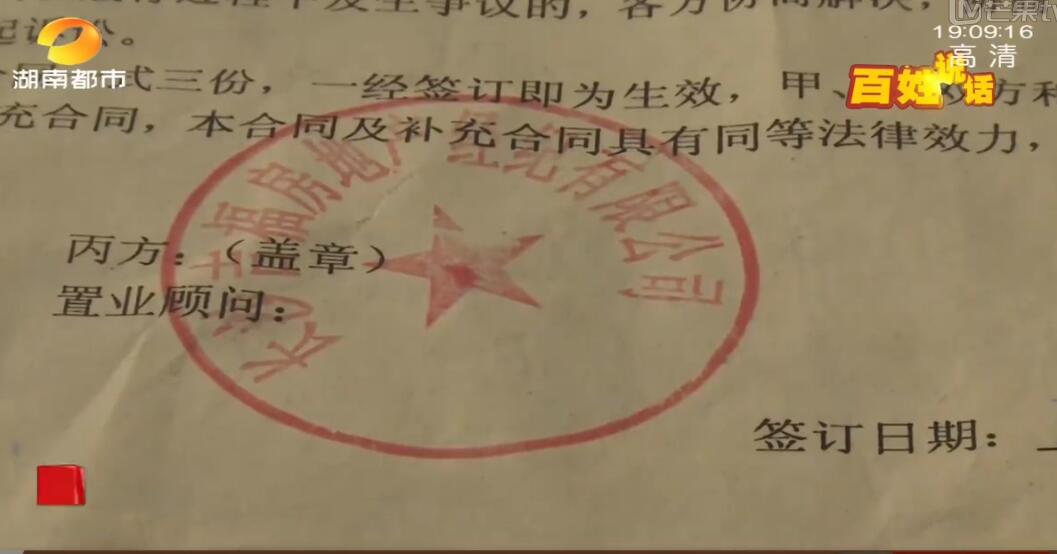 中发生争议的，各方协商解决，
芒果tv
19:09:16
高清
湖南都市
百姓说话
式三份，一经签订即为生效，甲、
方和
充合同，本合同及补充合同具有同等法律效力，
房地产经纪有限公司
长沙
丙方：（盖章）
置业顾问：
签订日期：